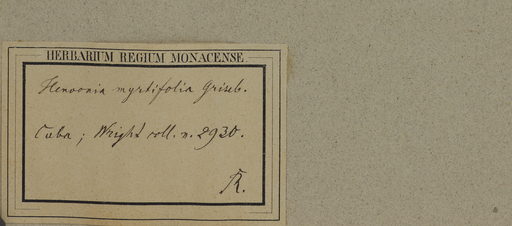 HERBARIUM REGIUM MONACENSE.
Henoonia myrtifolia Griseb.
Cuba; Wright coll. n. 2930.
R.